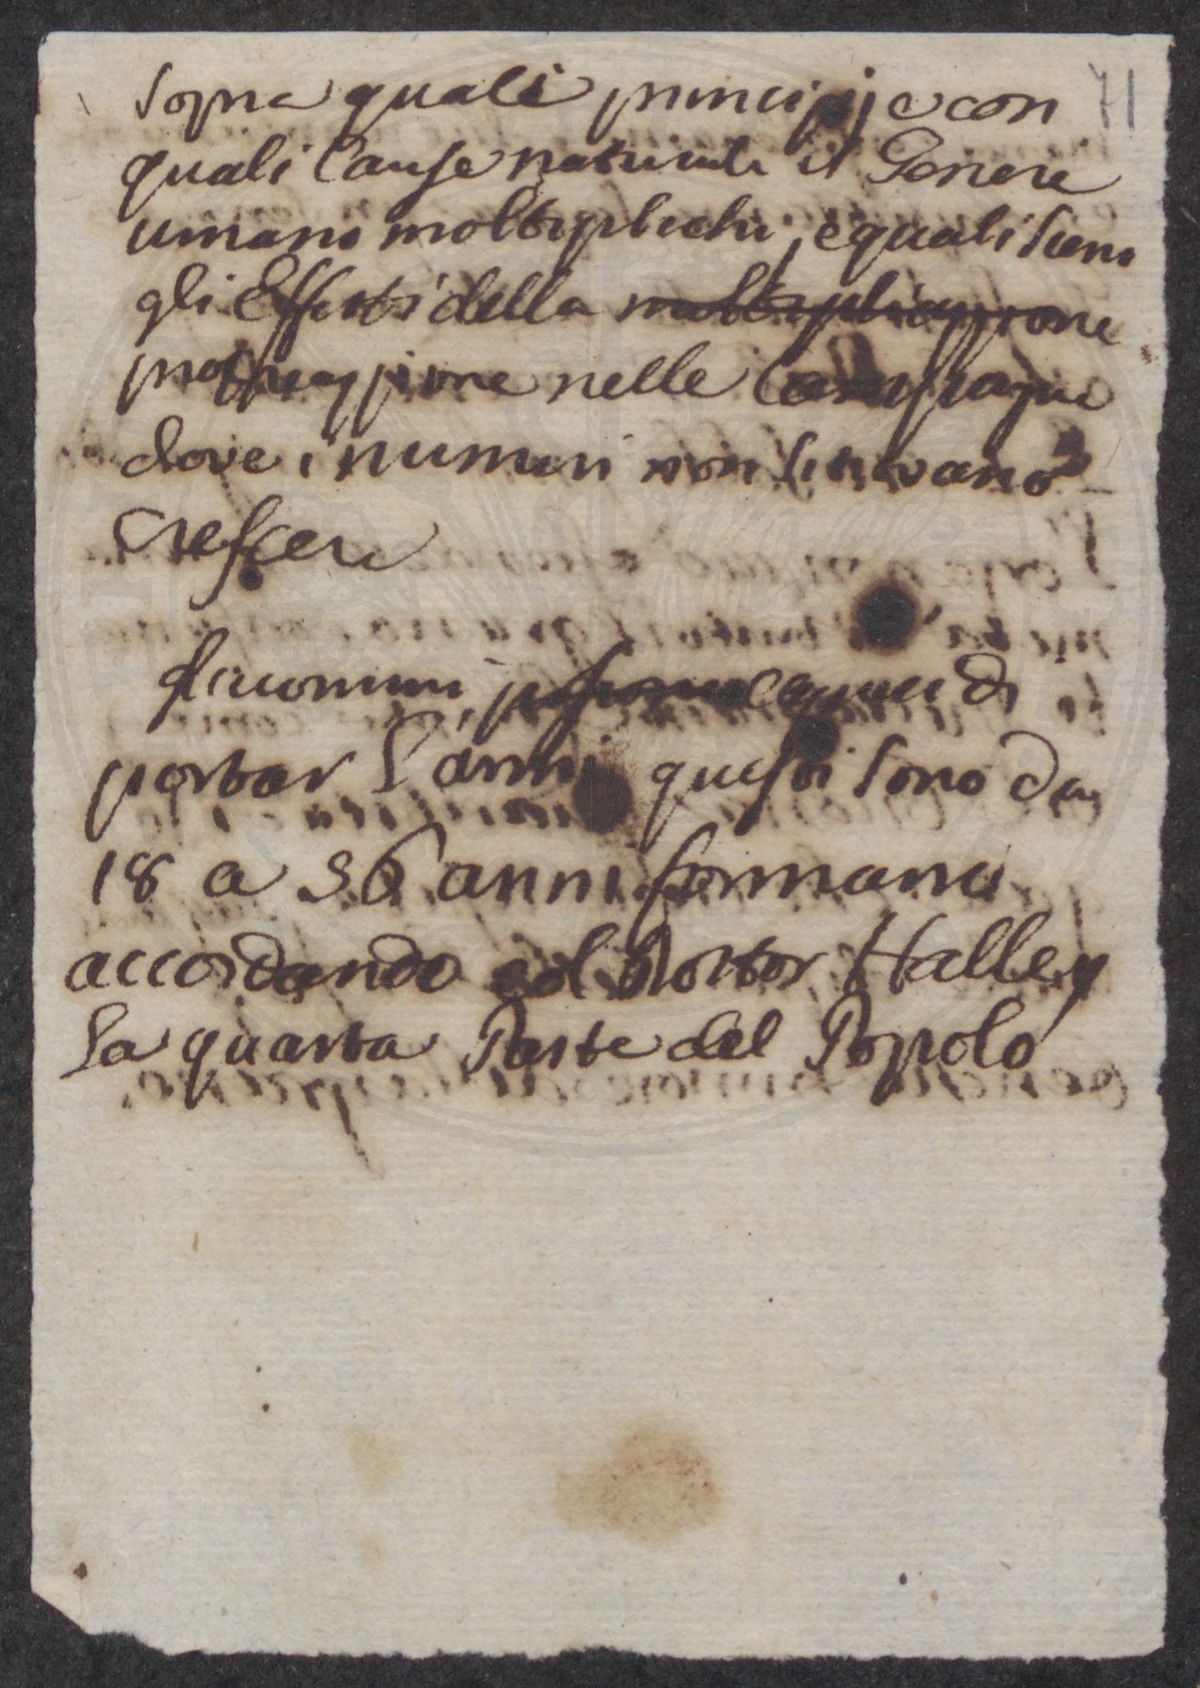 71
Sopra quali principij e con
quali Cause naturali il Genere
umano moltiplichi, e quali sieno
gli Effetti della moltipliazzione
nelle Campagne
dove i numeri non si trovano
crescere
gli uomini capaci di
portar l'armi questi sono da
18 a 56 anni formano
accordando col Dottor Halley
la quarta Parte del Popolo